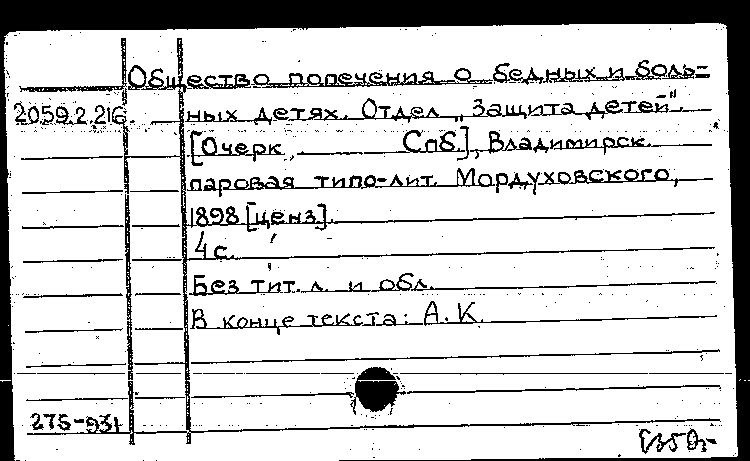 Общество попечения о бедных и боль-
2059.2.216. ных детях. Отдел „Защита детей".
[Очерк, Спб.], Владимирск.
паровая типо-лит. Мордуховского,
1898 [ценз].
4 с.
Без тит. л. и обл.
В конце текста: А. К.
275-931